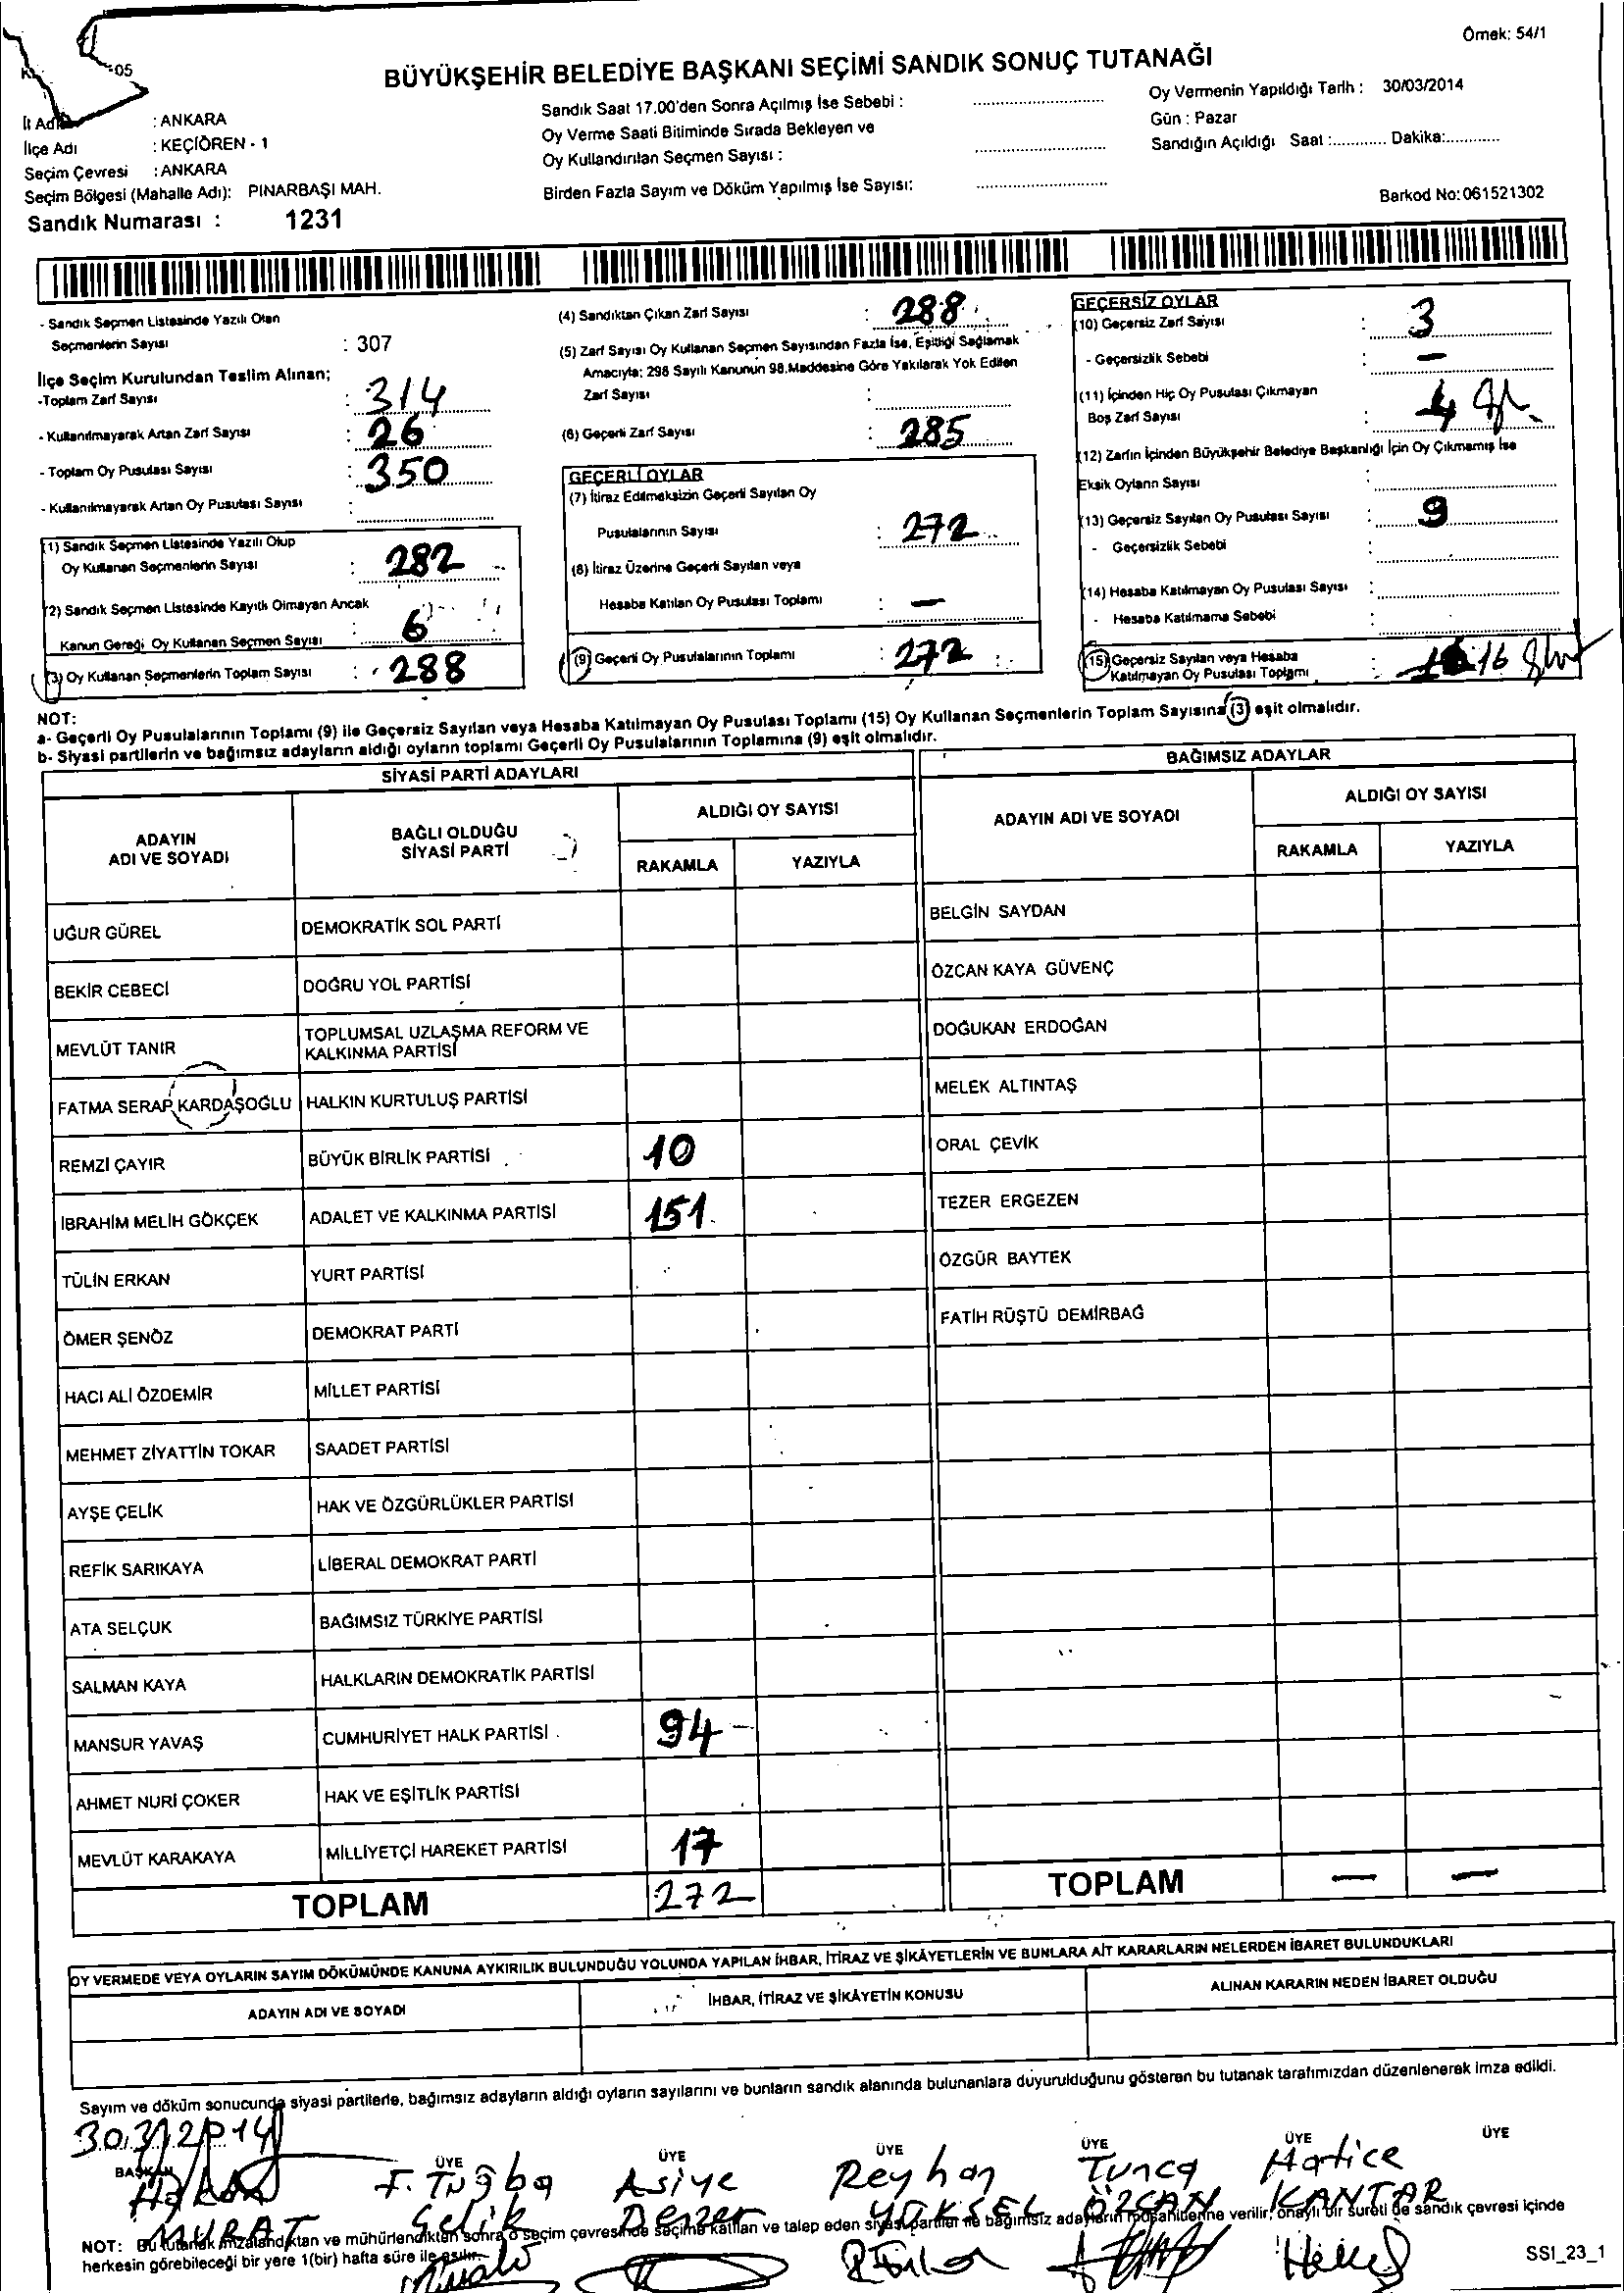 Örnek: 54/1
BÜYÜKŞEHİR BELEDİYE BAŞKANI SEÇİMİ SANDIK SONUÇ TUTANAĞI
İl Adı : ANKARA
İlçe Adı : KEÇİÖREN - 1
Seçim Çevresi : ANKARA
Seçim Bölgesi (Mahalle Adı): PINARBAŞI MAH.
Sandık Numarası : 1231
Sandık Saat 17.00'den Sonra Açılmış İse Sebebi :
Oy Verme Saati Bitiminde Sırada Bekleyen ve
Oy Kullandırılan Seçmen Sayısı :
Birden Fazla Sayım ve Döküm Yapılmış İse Sayısı:
Oy Vermenin Yapıldığı Tarih : 30/03/2014
Gün : Pazar
Sandığın Açıldığı Saat :............ Dakika:............
Barkod No: 061521302
- Sandık Seçmen Listesinde Yazılı Olan
Seçmenlerin Sayısı : 307
İlçe Seçim Kurulundan Teslim Alınan;
-Toplam Zarf Sayısı : 314
- Kullanılmayarak Artan Zarf Sayısı : 26
- Toplam Oy Pusulası Sayısı : 350
- Kullanılmayarak Artan Oy Pusulası Sayısı :
(1) Sandık Seçmen Listesinde Yazılı Olup
Oy Kullanan Seçmenlerin Sayısı : 282
(2) Sandık Seçmen Listesinde Kayıtlı Olmayan Ancak
Kanun Gereği Oy Kullanan Seçmen Sayısı : 6
(3) Oy Kullanan Seçmenlerin Toplam Sayısı : 288
(4) Sandıktan Çıkan Zarf Sayısı : 288
(5) Zarf Sayısı Oy Kullanan Seçmen Sayısından Fazla İse, Eşitliği Sağlamak
Amacıyla; 298 Sayılı Kanunun 98.Maddesine Göre Yakılarak Yok Edilen
Zarf Sayısı :
(6) Geçerli Zarf Sayısı : 285
GEÇERLİ OYLAR
(7) İtiraz Edilmeksizin Geçerli Sayılan Oy
Pusulalarının Sayısı : 272
(8) İtiraz Üzerine Geçerli Sayılan veya
Hesaba Katılan Oy Pusulası Toplamı : —
(9) Geçerli Oy Pusulalarının Toplamı : 272
GEÇERSİZ OYLAR
(10) Geçersiz Zarf Sayısı : 3
- Geçersizlik Sebebi : —
(11) İçinden Hiç Oy Pusulası Çıkmayan
Boş Zarf Sayısı : 4
(12) Zarfın İçinden Büyükşehir Belediye Başkanlığı İçin Oy Çıkmamış İse
Eksik Oyların Sayısı :
(13) Geçersiz Sayılan Oy Pusulası Sayısı : 9
- Geçersizlik Sebebi :
(14) Hesaba Katılmayan Oy Pusulası Sayısı :
- Hesaba Katılmama Sebebi :
(15) Geçersiz Sayılan veya Hesaba
Katılmayan Oy Pusulası Toplamı : 16
NOT:
a- Geçerli Oy Pusulalarının Toplamı (9) ile Geçersiz Sayılan veya Hesaba Katılmayan Oy Pusulası Toplamı (15) Oy Kullanan Seçmenlerin Toplam Sayısına (3) eşit olmalıdır.
b- Siyasi partilerin ve bağımsız adayların aldığı oyların toplamı Geçerli Oy Pusulalarının Toplamına (9) eşit olmalıdır.
SİYASİ PARTİ ADAYLARI
ADAYIN ADI VE SOYADI BAĞLI OLDUĞU SİYASİ PARTİ ALDIĞI OY SAYISI
RAKAMLA YAZIYLA
UĞUR GÜREL DEMOKRATİK SOL PARTİ
BEKİR CEBECİ DOĞRU YOL PARTİSİ
MEVLÜT TANIR TOPLUMSAL UZLAŞMA REFORM VE KALKINMA PARTİSİ
FATMA SERAP KARDAŞOĞLU HALKIN KURTULUŞ PARTİSİ
REMZİ ÇAYIR BÜYÜK BİRLİK PARTİSİ 10
İBRAHİM MELİH GÖKÇEK ADALET VE KALKINMA PARTİSİ 151
TÜLİN ERKAN YURT PARTİSİ
ÖMER ŞENÖZ DEMOKRAT PARTİ
HACI ALİ ÖZDEMİR MİLLET PARTİSİ
MEHMET ZİYATTİN TOKAR SAADET PARTİSİ
AYŞE ÇELİK HAK VE ÖZGÜRLÜKLER PARTİSİ
REFİK SARIKAYA LİBERAL DEMOKRAT PARTİ
ATA SELÇUK BAĞIMSIZ TÜRKİYE PARTİSİ
SALMAN KAYA HALKLARIN DEMOKRATİK PARTİSİ
MANSUR YAVAŞ CUMHURİYET HALK PARTİSİ 94
AHMET NURİ ÇOKER HAK VE EŞİTLİK PARTİSİ
MEVLÜT KARAKAYA MİLLİYETÇİ HAREKET PARTİSİ 17
TOPLAM 272
BAĞIMSIZ ADAYLAR
ADAYIN ADI VE SOYADI ALDIĞI OY SAYISI
RAKAMLA YAZIYLA
BELGİN SAYDAN
ÖZCAN KAYA GÜVENÇ
DOĞUKAN ERDOĞAN
MELEK ALTINTAŞ
ORAL ÇEVİK
TEZER ERGEZEN
ÖZGÜR BAYTEK
FATİH RÜŞTÜ DEMİRBAĞ
TOPLAM — —
OY VERMEDE VEYA OYLARIN SAYIM DÖKÜMÜNDE KANUNA AYKIRILIK BULUNDUĞU YOLUNDA YAPILAN İHBAR, İTİRAZ VE ŞİKÂYETLERİN VE BUNLARA AİT KARARLARIN NELERDEN İBARET BULUNDUKLARI
ADAYIN ADI VE SOYADI İHBAR, İTİRAZ VE ŞİKÂYETİN KONUSU ALINAN KARARIN NEDEN İBARET OLDUĞU
Sayım ve döküm sonucunda siyasi partilerle, bağımsız adayların aldığı oyların sayılarını ve bunların sandık alanında bulunanlara duyurulduğunu gösteren bu tutanak tarafımızdan düzenlenerek imza edildi.
30/3/2014
BAŞKAN ÜYE ÜYE ÜYE ÜYE ÜYE ÜYE
Hakan F. Tuğba Asiye Reyhan Tunca Hatice
MURAT Çelik Dezer YÜKSEL ÖZCAN KANTAR
NOT: Bu tutanak imzalandıktan ve mühürlendikten sonra o seçim çevresinde seçime katılan ve talep eden siyasi partiler ile bağımsız adayların müşahitlerine verilir; onaylı bir sureti de sandık çevresi içinde
herkesin görebileceği bir yere 1(bir) hafta süre ile asılır.
SSI_23_1